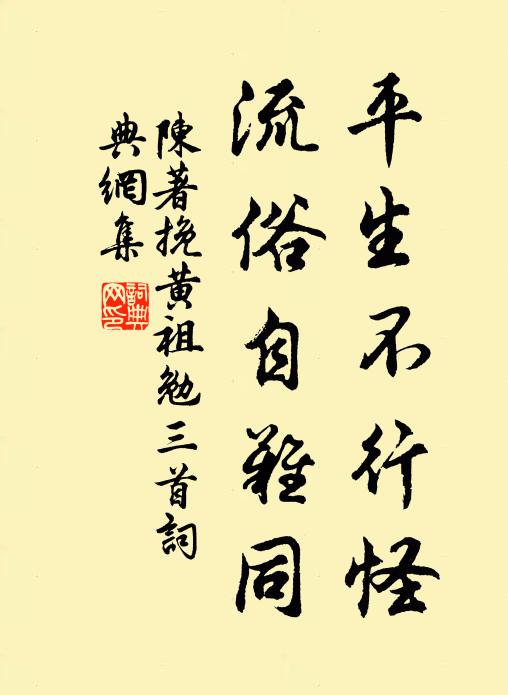 平生不行怪
流俗自難同
陳著挽黃祖勉三首詞
典網集
詞典網印